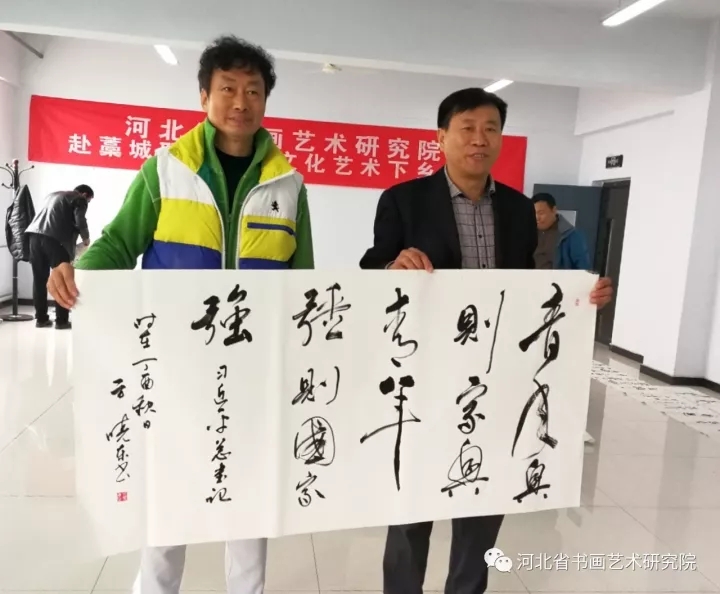 河北 画艺术研究院
赴藁城 文化艺术下乡
青年興
則家興
青年
強則國家
強
习近平总书记
时在丁酉秋日
晓东书
河北省书画艺术研究院